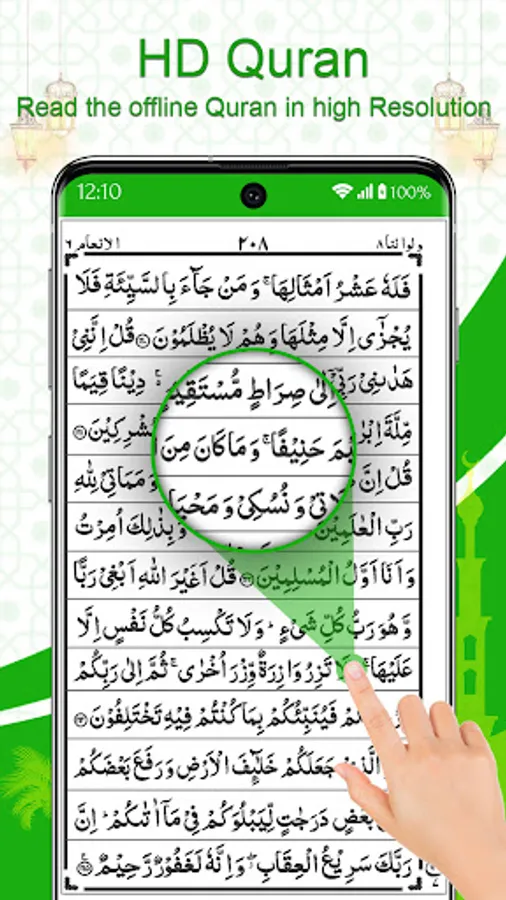 HD Quran
Read the offline Quran in high Resolution
12:10 100%
ولواننا ٨ ٢٠٨ الانعام ٦
فَلَهٗ عَشْرُ اَمْثَالِهَا ۚ وَ مَنْ جَآءَ بِالسَّيِّئَةِ فَلَا
يُجْزٰۤى اِلَّا مِثْلَهَا وَ هُمْ لَا يُظْلَمُوْنَ ۝ قُلْ اِنَّنِيْ
هَدٰىنِيْ رَبِّيْۤ اِلٰى صِرَاطٍ مُّسْتَقِيْمٍ ۚ دِيْنًا قِيَمًا
مِّلَّةَ حَنِيْفًا ۚ وَ مَا كَانَ مِنَ
قُلْ اِنَّ وَ نُسُكِيْ وَ مَمَاتِيْ لِلّٰهِ
رَبِّ الْعٰلَمِيْنَ وَ بِذٰلِكَ اُمِرْتُ
وَ اَنَا اَوَّلُ الْمُسْلِمِيْنَ ۝ قُلْ اَغَيْرَ اللّٰهِ اَبْغِيْ رَبًّا
وَّ هُوَ رَبُّ كُلِّ شَيْءٍ ؕ وَ لَا تَكْسِبُ كُلُّ نَفْسٍ اِلَّا
عَلَيْهَا ۚ لَا تَزِرُ وَازِرَةٌ وِّزْرَ اُخْرٰى ۚ ثُمَّ اِلٰى رَبِّكُمْ
فَيُنَبِّئُكُمْ بِمَا كُنْتُمْ فِيْهِ تَخْتَلِفُوْنَ ۝
جَعَلَكُمْ خَلٰٓئِفَ الْاَرْضِ وَ رَفَعَ بَعْضَكُمْ
بَعْضٍ دَرَجٰتٍ لِّيَبْلُوَكُمْ فِيْ مَاۤ اٰتٰىكُمْ ؕ اِنَّ
رَبَّكَ سَرِيْعُ الْعِقَابِ ۖ وَ اِنَّهٗ لَغَفُوْرٌ رَّحِيْمٌ ۝